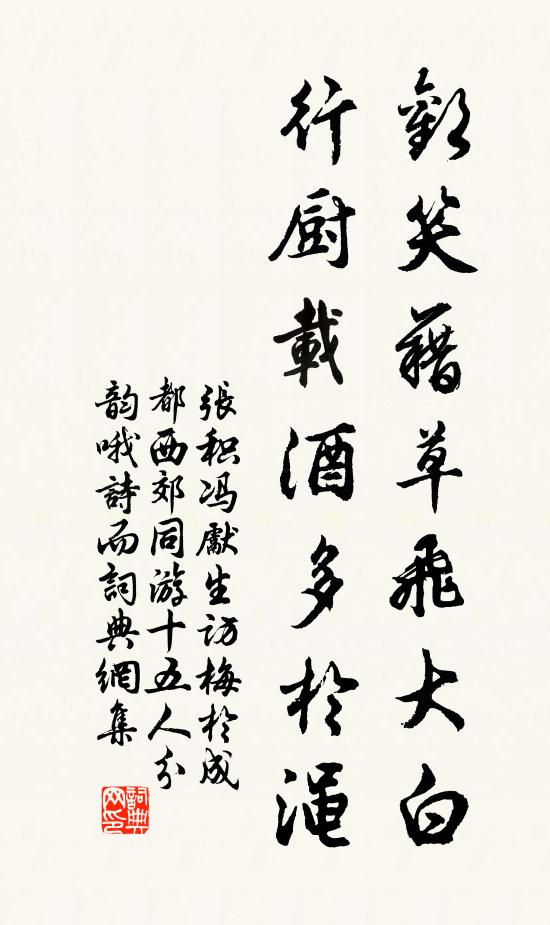 歡笑藉草飛大白
行厨載酒多於渑
張积冯獻生訪梅於成
都西郊同游十五人分
韵哦詩而詞典網集
詞典
网印